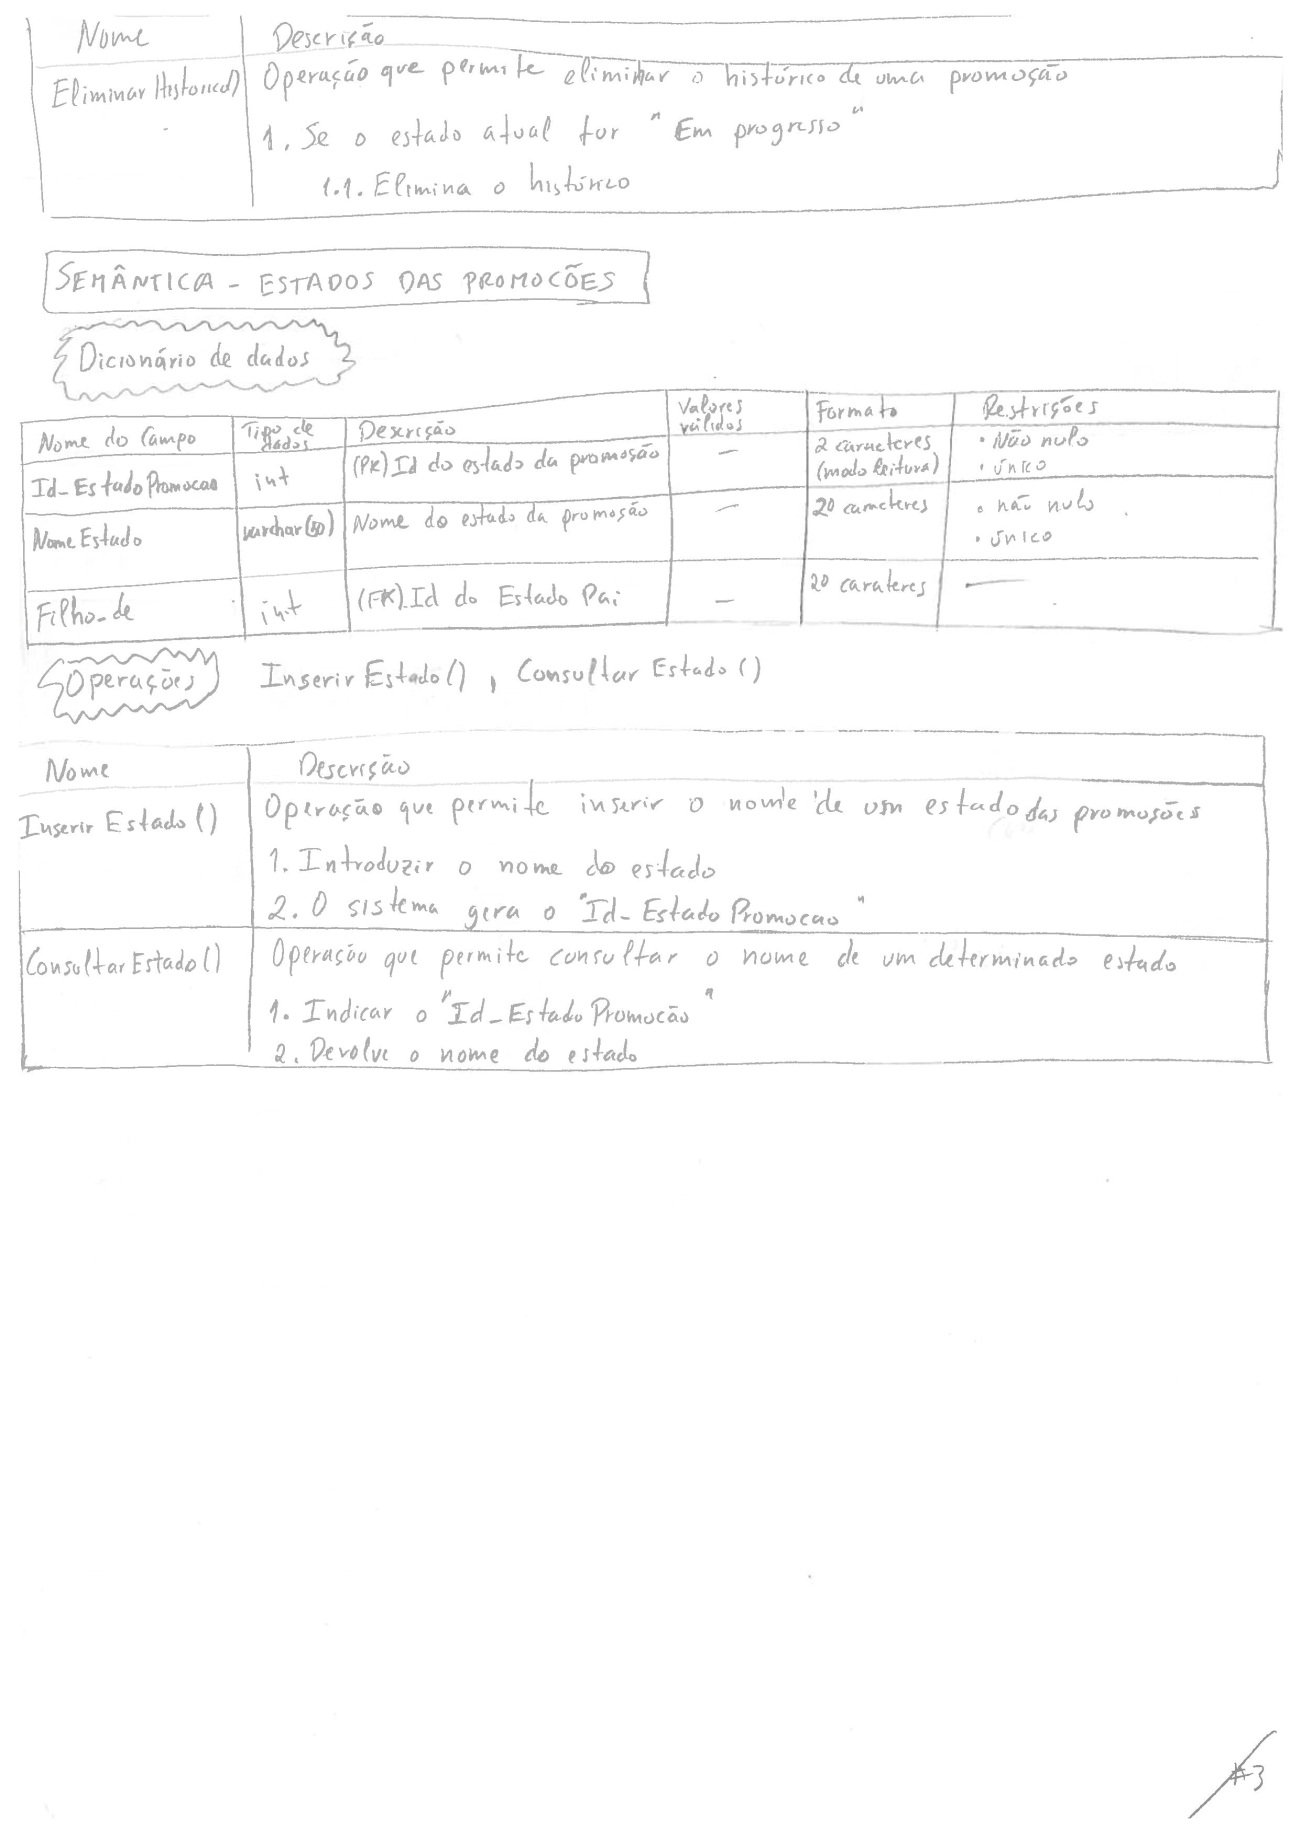 Nome Descrição
Eliminar Historico() Operação que permite eliminar o histórico de uma promoção
1. Se o estado atual for "Em progresso"
1.1. Elimina o histórico
SEMÂNTICA - ESTADOS DAS PROMOCÕES
Dicionário de dados
Nome do Campo Tipo de dados Descrição Valores válidos Formato Restrições
Id_EstadoPromocao int (PK) Id do estado da promoção — 2 caracteres (modo leitura) • Não nulo • único
Nome Estado varchar(50) Nome do estado da promoção — 20 caracteres • não nulo • único
Filho_de int (FK) Id do Estado Pai — 20 carateres —
Operações Inserir Estado() , Consultar Estado()
Nome Descrição
Inserir Estado() Operação que permite inserir o nome de um estado das promoções
1. Introduzir o nome do estado
2. O sistema gera o "Id_Estado Promocao"
Consultar Estado() Operação que permite consultar o nome de um determinado estado
1. Indicar o "Id_Estado Promocão"
2. Devolve o nome do estado
#3